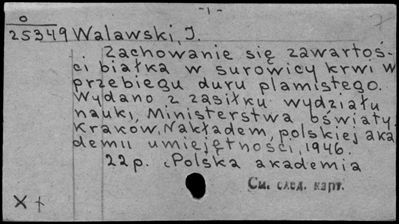 -1-
0
25349 Walawski, J.
Zachowanie się zawartoś-
ci białka w surowicy krwi w
przebiegu duru plamistego.
Wydano z zasiłku wydziału
nauki, Ministerstwa oświaty.
Kraków, Nakładem, polskiej aka
demii umiejętności, 1946.
22 p. (Polska akademia
См. след. карт.
X +